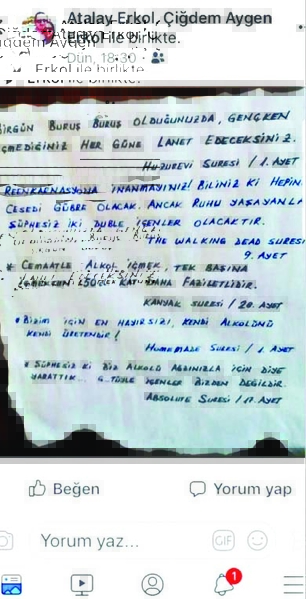 Atalay Erkol, Çiğdem Aygen
Erkol ile birlikte.
Dün, 18:30
Erkol ile birlikte.
BİRGÜN BURUŞ BURUŞ OLDUĞUNUZDA, GENÇKEN
İÇMEDİĞİNİZ HER GÜNE LANET EDECEKSİNİZ.
HUZUREVİ SURESİ / 1. AYET
REENKARNASYONA İNANMAYINIZ! BİLİNİZ Kİ HEPİN
CESEDİ GÜBRE OLACAK. ANCAK RUHU YAŞAYANLA
ŞÜPHESİZ İKİ DUBLE İÇENLER OLACAKTIR.
THE WALKING DEAD SURESİ
9. AYET
* CEMAATLE ALKOL İÇMEK, TEK BAŞINA
İÇMEKTEN KAT DAHA FAZİLETLİDİR.
KANYAK SURESİ / 20. AYET
* BİZİM İÇİN EN HAYIRSIZI, KENDİ ALKOLÜNÜ
KENDİ ÜRETENDİR!
HOMEMADE SURESİ / 1. AYET
* ŞÜPHESİZ Kİ BİZ ALKOLÜ AĞZINIZLA İÇİN DİYE
YARATTIK... G..TÜYLE İÇENLER BİZDEN DEĞİLDİR.
ABSOLUTE SURESİ / 17. AYET
Beğen
Yorum yap
Yorum yaz...
GIF
1